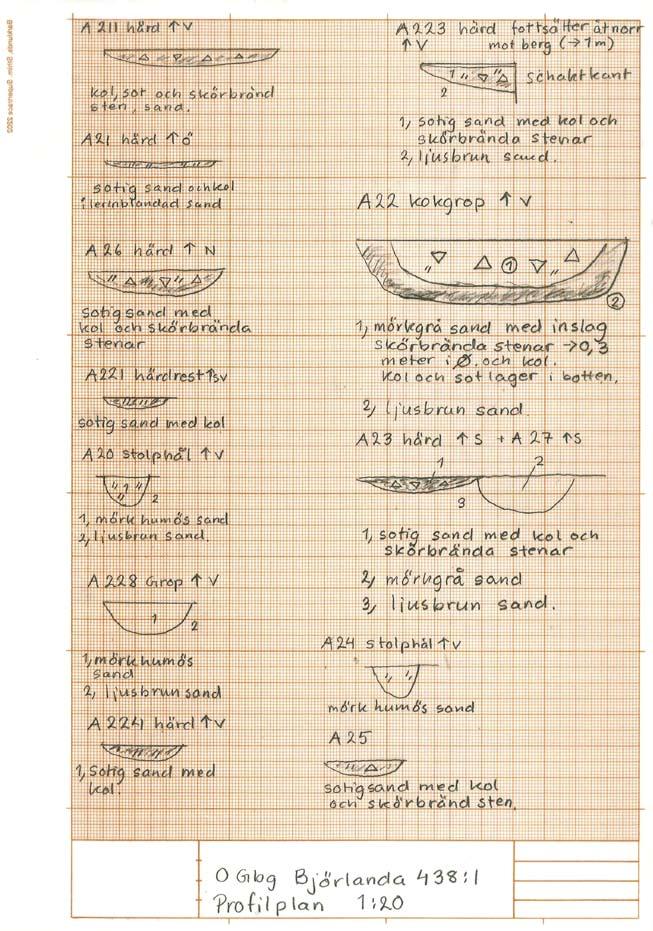 A 211 härd ↑V
kol, sot och skörbränd
sten, sand.
A21 härd ↑Ö
sotig sand och kol
i lerinblandad sand
A 26 härd ↑ N
sotig sand med
kol och skörbrända
stenar
A221 härdrest ↑sv
sotig sand med kol
A20 stolphål ↑V
1
2
1, mörk humös sand
2, ljusbrun sand.
A 228 Grop ↑ V
1
2
1, mörk humös
sand
2, ljusbrun sand
A 224 härd ↑V
1, sotig sand med
kol.
A223 härd fortsätter åt norr
↑V mot berg (→1m)
1
2
schaktkant
1, sotig sand med kol och
skörbrända stenar
2, ljusbrun sand.
A22 kokgrop ↑ V
1
2
1, mörkgrå sand med inslag
skörbrända stenar →0,3
meter i Ø. och kol.
kol och sot lager i botten.
2, ljusbrun sand.
A23 härd ↑S + A 27 ↑S
1
2
3
1, sotig sand med kol och
skörbrända stenar
2, mörkgrå sand
3, ljusbrun sand.
A24 stolphål ↑V
mörk humös sand
A25
sotig sand med kol
och skörbränd sten.
O Gbg Björlanda 438:1
Profilplan 1:20